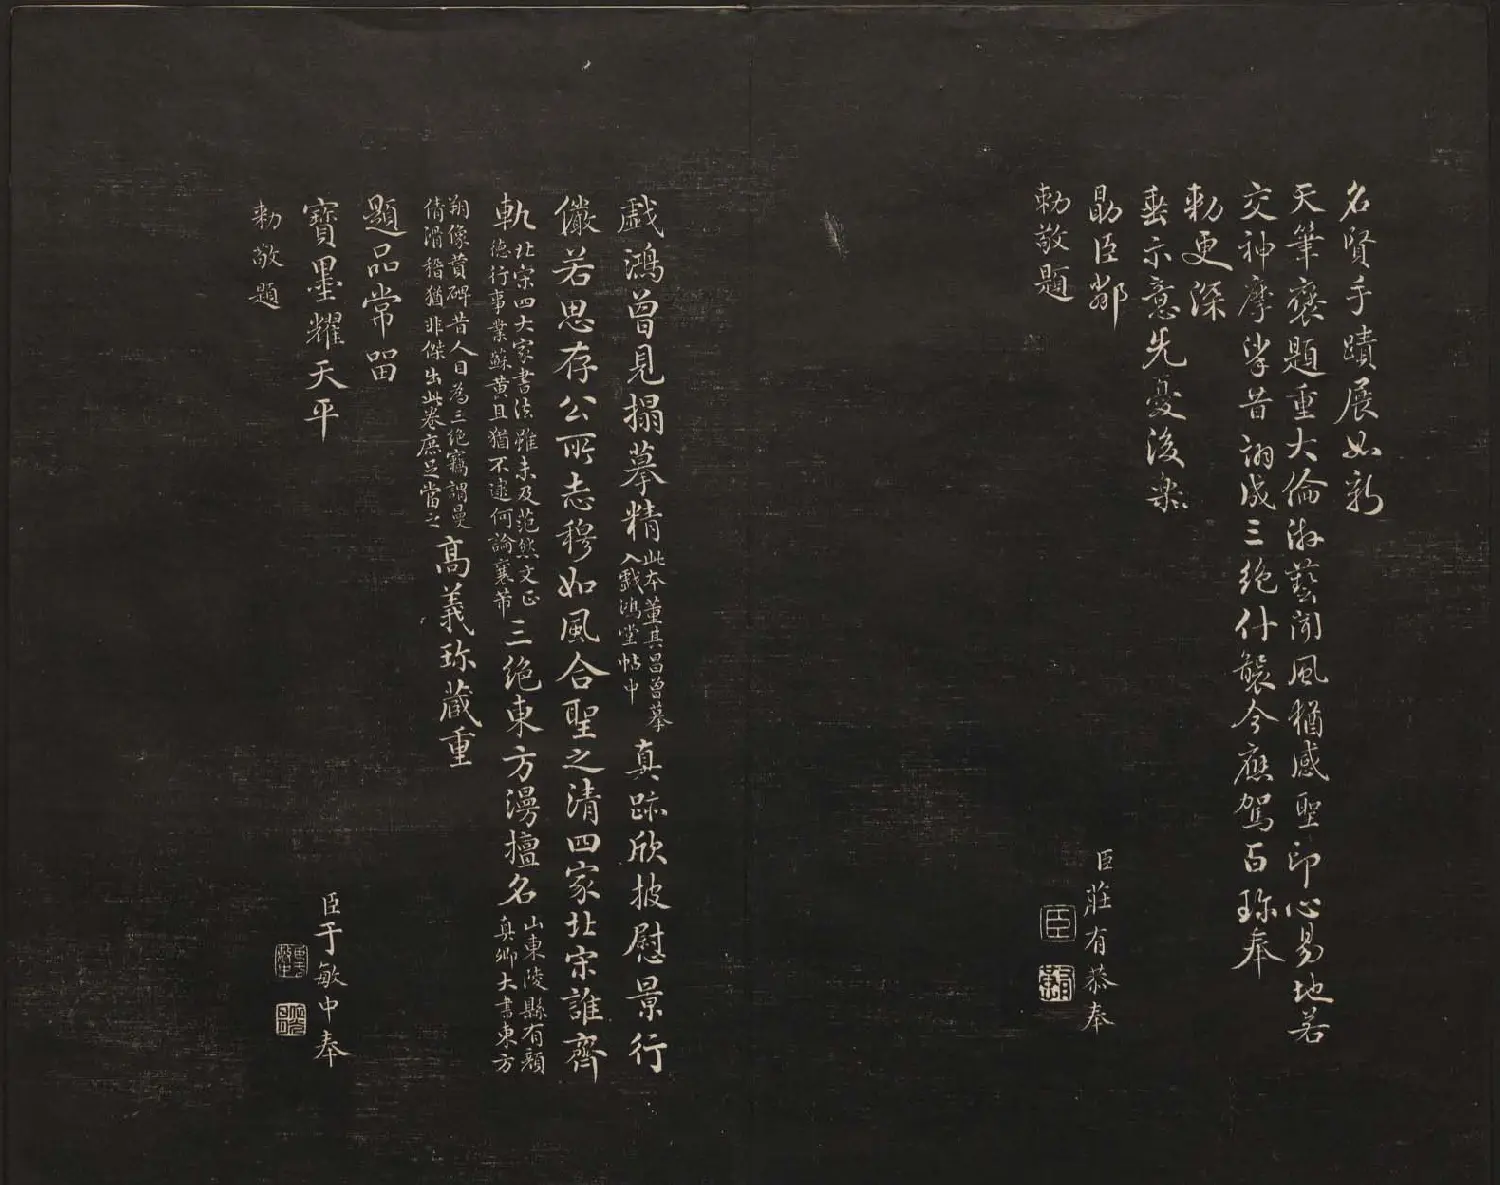 名賢手蹟展如新
天筆褒題重大倫游藝閒風猶感聖印心易地若
交神摩挲昔詡成三絶什襲今應駕百珎奉
勅更深
垂示意先憂後樂
勖臣鄰
臣莊有恭奉
勅敬題
戲鴻曾見搨摹精
此本董其昌曾摹
入戲鴻堂帖中
真跡欣披慰景行
儼若思存公所志穆如風合聖之清四家北宋誰齊
軌
北宋四大家書法雖未及范然文正
德行事業蘇黄且猶不逮何論襄芾
三絶東方漫擅名
山東陵縣有顔
真卿大書東方
朔像贊碑昔人目為三絶竊謂曼
倩滑稽猶非傑出此卷庶足當之
高義珎藏重
題品常留
寳墨耀天平
臣于敏中奉
勅敬題